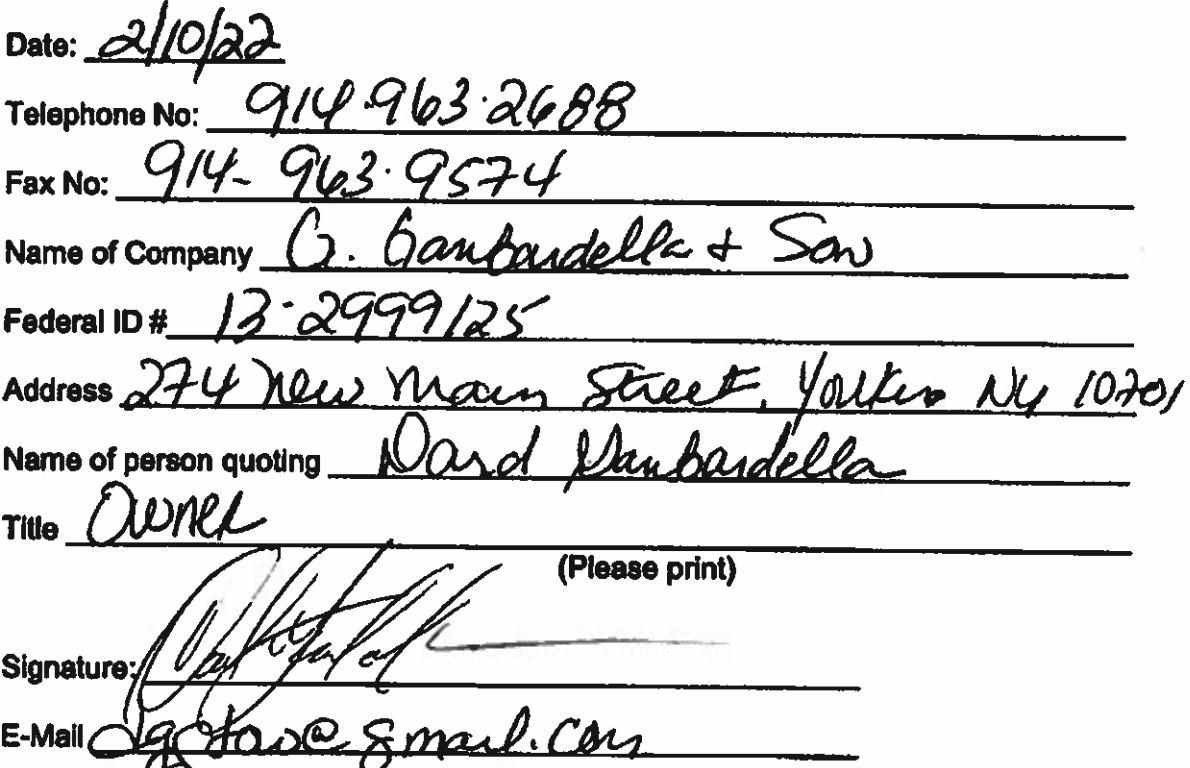 Date: 2/10/22
Telephone No: 914.963.2688
Fax No: 914-963.9574
Name of Company G. Gambardella + Son
Federal ID # 13-2999125
Address 274 New Main Street, Yonkers NY 10701
Name of person quoting David Gambardella
Title Owner
(Please print)
Signature:
E-Mail @gmail.com